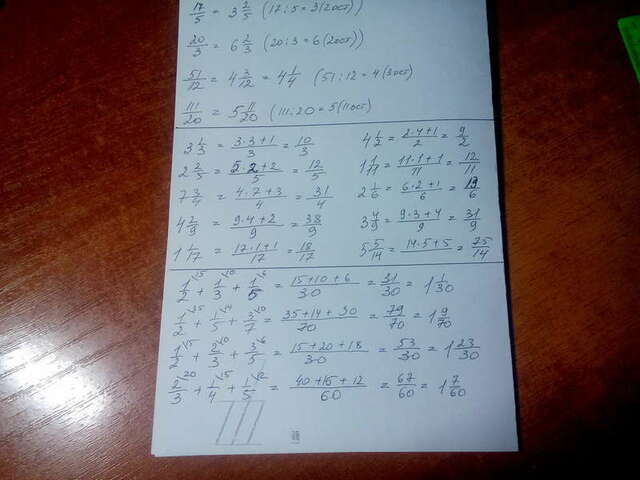 17/5 = 3 2/5 (17:5=3(2ост))
20/3 = 6 2/3 (20:3=6(2ост))
51/12 = 4 3/12 = 4 1/4 (51:12=4(3ост)
111/20 = 5 11/20 (111:20=5(11ост)
3 1/3 = 3·3+1/3 = 10/3 4 1/2 = 2·4+1/2 = 9/2
2 2/5 = 5·2+2/5 = 12/5 1 1/11 = 11·1+1/11 = 12/11
7 3/4 = 4·7+3/4 = 31/4 2 1/6 = 6·2+1/6 = 13/6
4 2/9 = 9·4+2/9 = 38/9 3 4/9 = 9·3+4/9 = 31/9
1 1/17 = 17·1+1/17 = 18/17 5 5/14 = 14·5+5/14 = 75/14
1/2\15 + 1/3\10 + 1/5\6 = 15+10+6/30 = 31/30 = 1 1/30
1/2\35 + 1/5\14 + 3/7\10 = 35+14+30/70 = 79/70 = 1 9/70
1/2\15 + 2/3\10 + 3/5\6 = 15+20+18/30 = 53/30 = 1 23/30
2/3\20 + 1/4\15 + 1/5\12 = 40+15+12/60 = 67/60 = 1 7/60